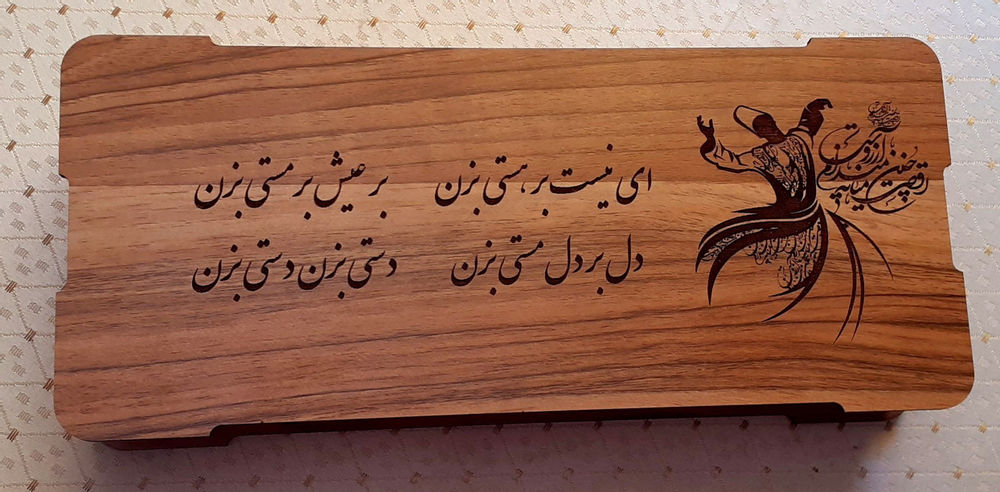 ای نیست بر هستی بزن بر عیش بر مستی بزن
دل بر دل مستی بزن دستی بزن دستی بزن
رقصی چنین میانه میدانم آرزوست